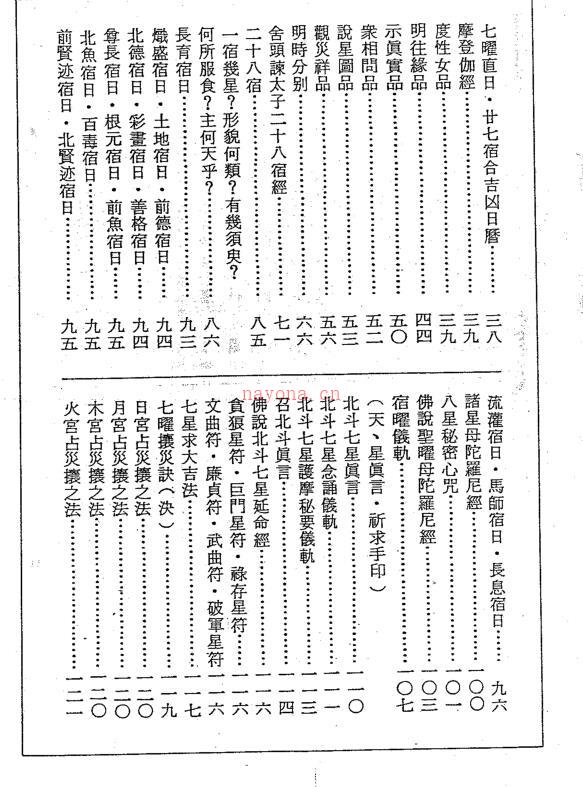 七曜直日・廿七宿合吉凶日曆……三八
摩登伽經……三九
度性女品……三九
明往緣品……四四
示眞實品……五〇
衆相問品……五二
說星圖品……五三
觀災祥品……五六
明時分别……六六
舍頭諫太子二十八宿經……七一
二十八宿……八五
一宿幾星？形貌何類？有幾須臾？
何所服食？主何天乎？……八六
長育宿日……九三
熾盛宿日・土地宿日・前德宿日……九四
北德宿日・彩畫宿日・善格宿日……九四
尊長宿日・根元宿日・前魚宿日……九五
北魚宿日・百毒宿日……九五
前賢迹宿日・北賢迹宿日……九五
流灌宿日・馬師宿日・長息宿日……九六
諸星母陀羅尼經……一〇〇
八星秘密心咒……一〇一
佛說聖曜母陀羅尼經……一〇三
宿曜儀軌……一〇七
（天、星眞言・祈求手印）
北斗七星眞言……一一〇
北斗七星念誦儀軌……一一一
北斗七星護摩秘要儀軌……一一三
召北斗眞言……一一四
佛說北斗七星延命經……一一六
貪狼星符・巨門星符・祿存星符……一一六
文曲符・廉貞符・武曲符・破軍星符……一一六
七星求大吉法……一一七
七曜攘災訣（決）……一一九
日宮占災攘之法……一二〇
月宮占災攘之法……一二〇
木宮占災攘之法……一二〇
火宮占災攘之法……一二一
nayona.cn